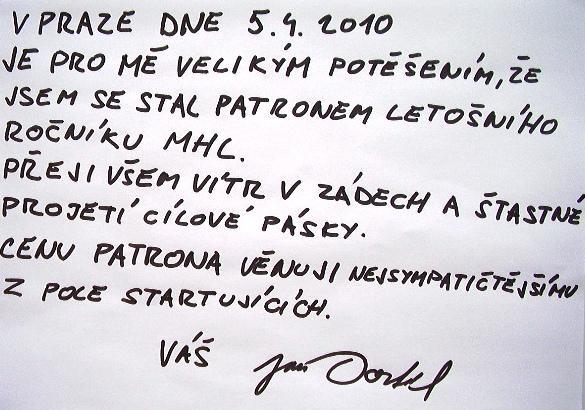 V PRAZE DNE 5.4. 2010
JE PRO MĚ VELIKÝM POTĚŠENÍM, ŽE
JSEM SE STAL PATRONEM LETOŠNÍHO
ROČNÍKU MHL.
PŘEJI VŠEM VÍTR V ZÁDECH A ŠTASTNÉ
PROJETÍ CÍLOVÉ PÁSKY.
CENU PATRONA VĚNUJI NEJSYMPATIČTĚJŠÍMU
Z POLE STARTUJÍCÍCH.
VÁŠ